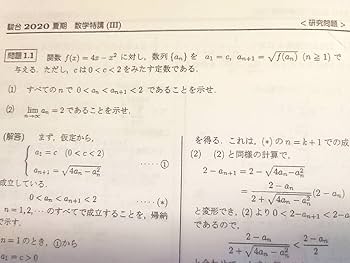 駿台 2020 夏期 数学特講(III)
<研究問題>
問題 1.1 関数 f(x) = 4x − x² に対し, 数列 {aₙ} を a₁ = c, aₙ₊₁ = √f(aₙ) (n ≧ 1) で
与える. ただし, c は 0 < c < 2 をみたす定数である.
(1) すべての n で 0 < aₙ < aₙ₊₁ < 2 であることを示せ.
(2) lim n→∞ aₙ = 2 であることを示せ.
(解答) まず, 仮定から,
{ a₁ = c (0 < c < 2)
aₙ₊₁ = √4aₙ − aₙ² ····· ①
成立している.
0 < aₙ < aₙ₊₁ < 2 ····· (*)
n = 1, 2, ··· のすべてで成立することを, 帰納
で示す.
n = 1 のとき, ①から
a₁ = c > 0
を得る. これは, (*) の n = k + 1 での成
(2) (2) と同様の計算で,
2 − aₙ₊₁ = 2 − √4aₙ − aₙ²
= (2 − aₙ)/(2 + √4aₙ − aₙ²) (2 − aₙ)
と変形でき, (2) より 0 < 2 − aₙ₊₁ < 2 − a
であるので,
(2 − aₙ)/(2 + √4aₙ − aₙ²) < (2 − aₙ)/2